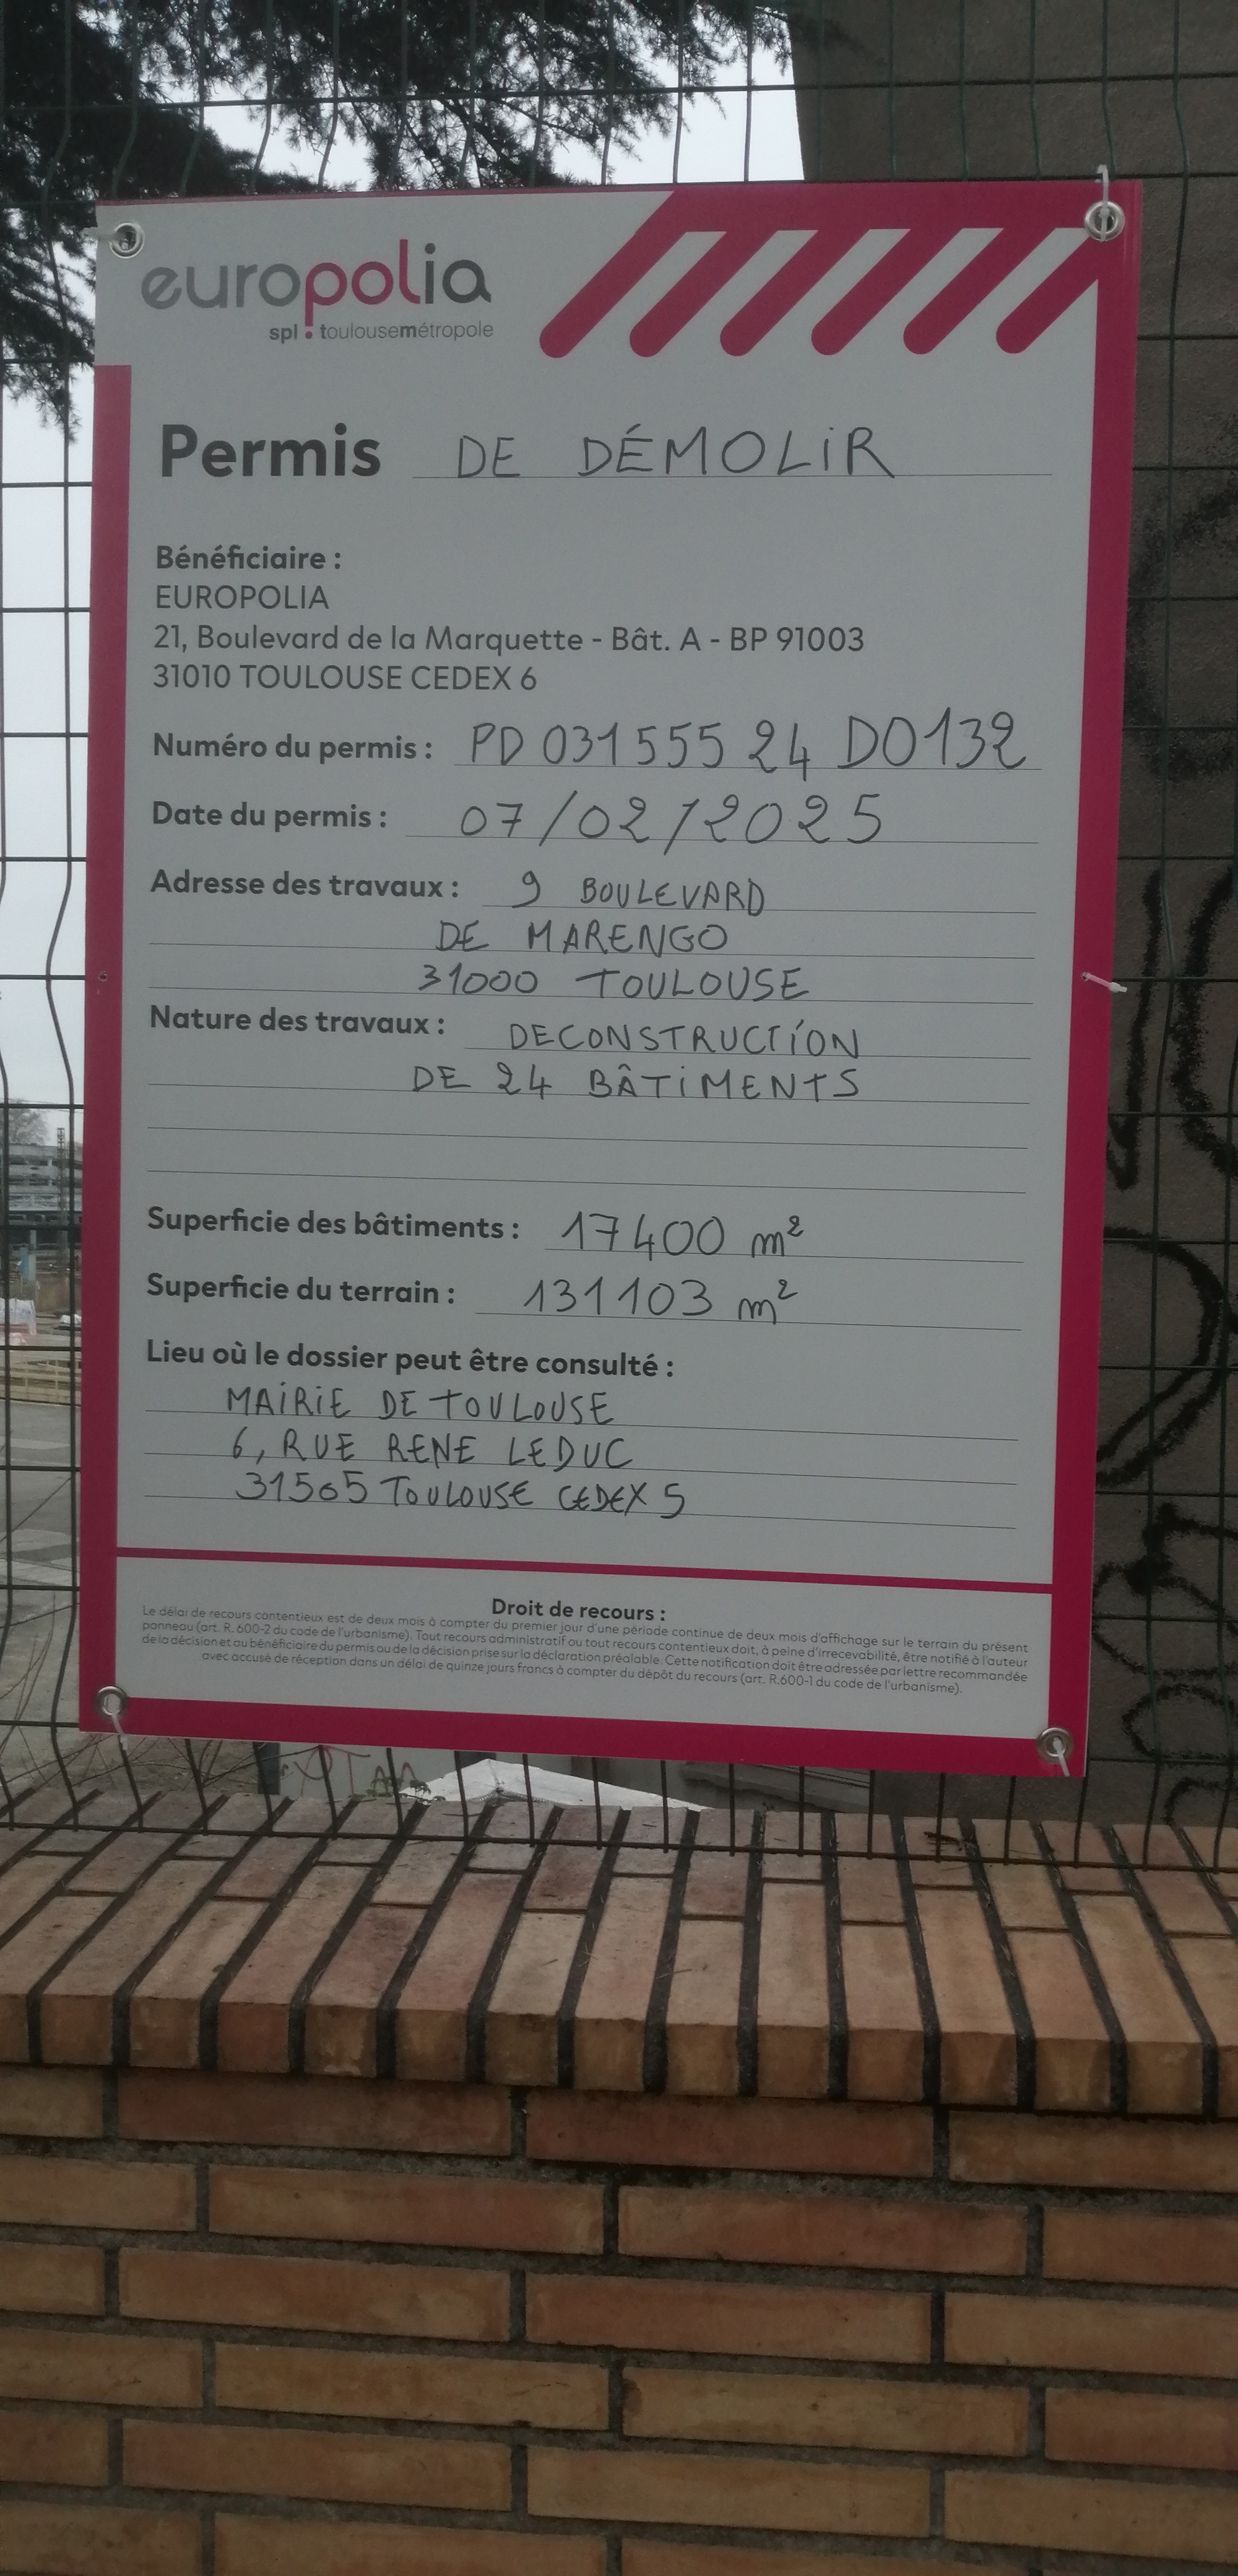 europolia
spl toulousemétropole
Permis DE DÉMOLIR
Bénéficiaire :
EUROPOLIA
21, Boulevard de la Marquette - Bât. A - BP 91003
31010 TOULOUSE CEDEX 6
Numéro du permis : PD 031555 24 D0132
Date du permis : 07/02/2025
Adresse des travaux : 9 BOULEVARD
DE MARENGO
31000 TOULOUSE
Nature des travaux : DECONSTRUCTION
DE 24 BÂTIMENTS
Superficie des bâtiments : 17400 m²
Superficie du terrain : 131103 m²
Lieu où le dossier peut être consulté :
MAIRIE DE TOULOUSE
6, RUE RENE LEDUC
31505 TOULOUSE CEDEX 5
Droit de recours :
Le délai de recours contentieux est de deux mois à compter du premier jour d'une période continue de deux mois d'affichage sur le terrain du présent
panneau (art. R. 600-2 du code de l'urbanisme). Tout recours administratif ou tout recours contentieux doit, à peine d'irrecevabilité, être notifié à l'auteur
de la décision et au bénéficiaire du permis ou de la décision prise sur la déclaration préalable. Cette notification doit être adressée par lettre recommandée
avec accusé de réception dans un délai de quinze jours francs à compter du dépôt du recours (art. R.600-1 du code de l'urbanisme).